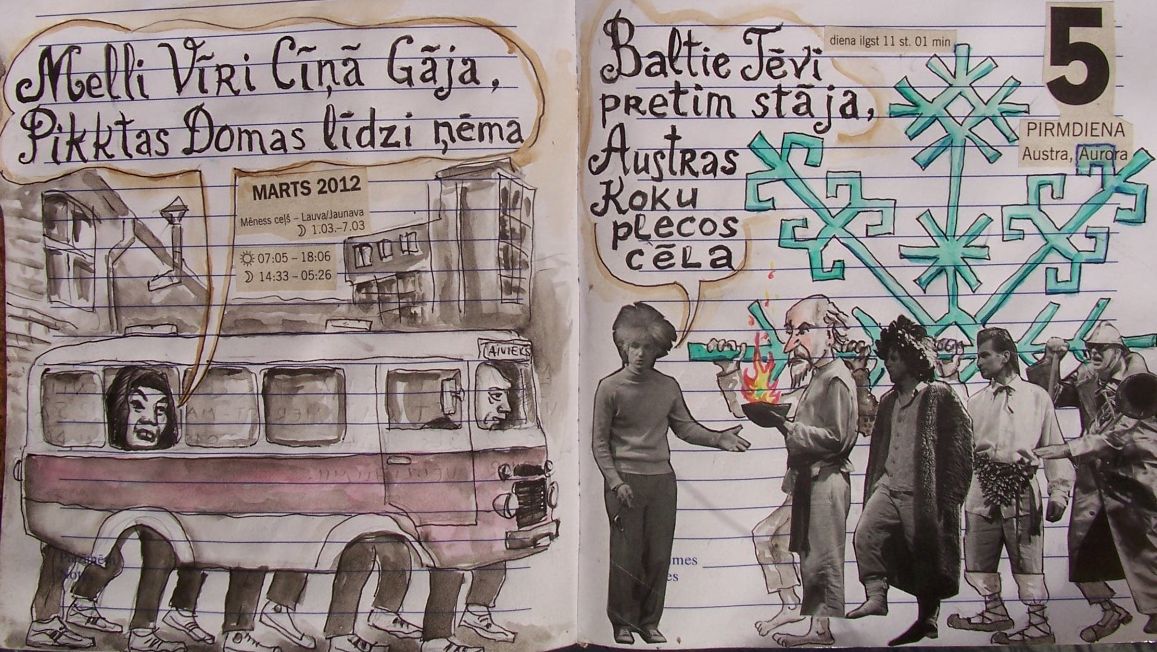 Melli Vīri Cīņā Gāja,
Pikktas Domas līdzi ņēma
MARTS 2012
Mēness ceļš – Lauva/Jaunava
☽ 1.03.–7.03
☼ 07:05 – 18:06
☽ 14:33 – 05:26
Baltie Tēvi
pretim stāja,
Austras
Koku
plecos
cēla
diena ilgst 11 st. 01 min
5
PIRMDIENA
Austra, Aurora